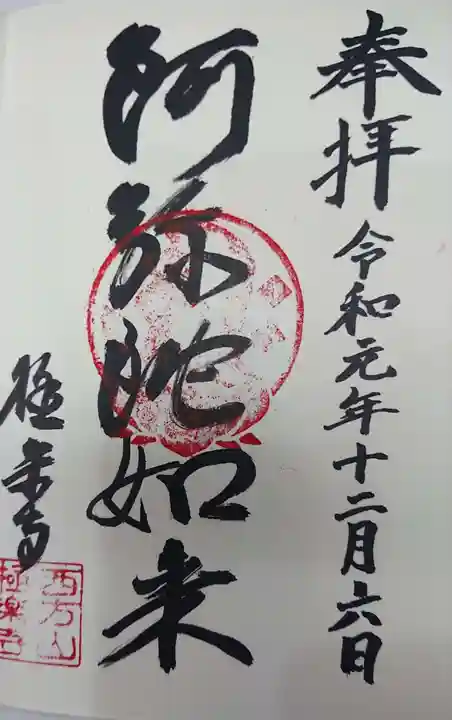 奉拝
令和元年十二月六日
阿弥陀如来
極楽寺
西方山
極楽寺